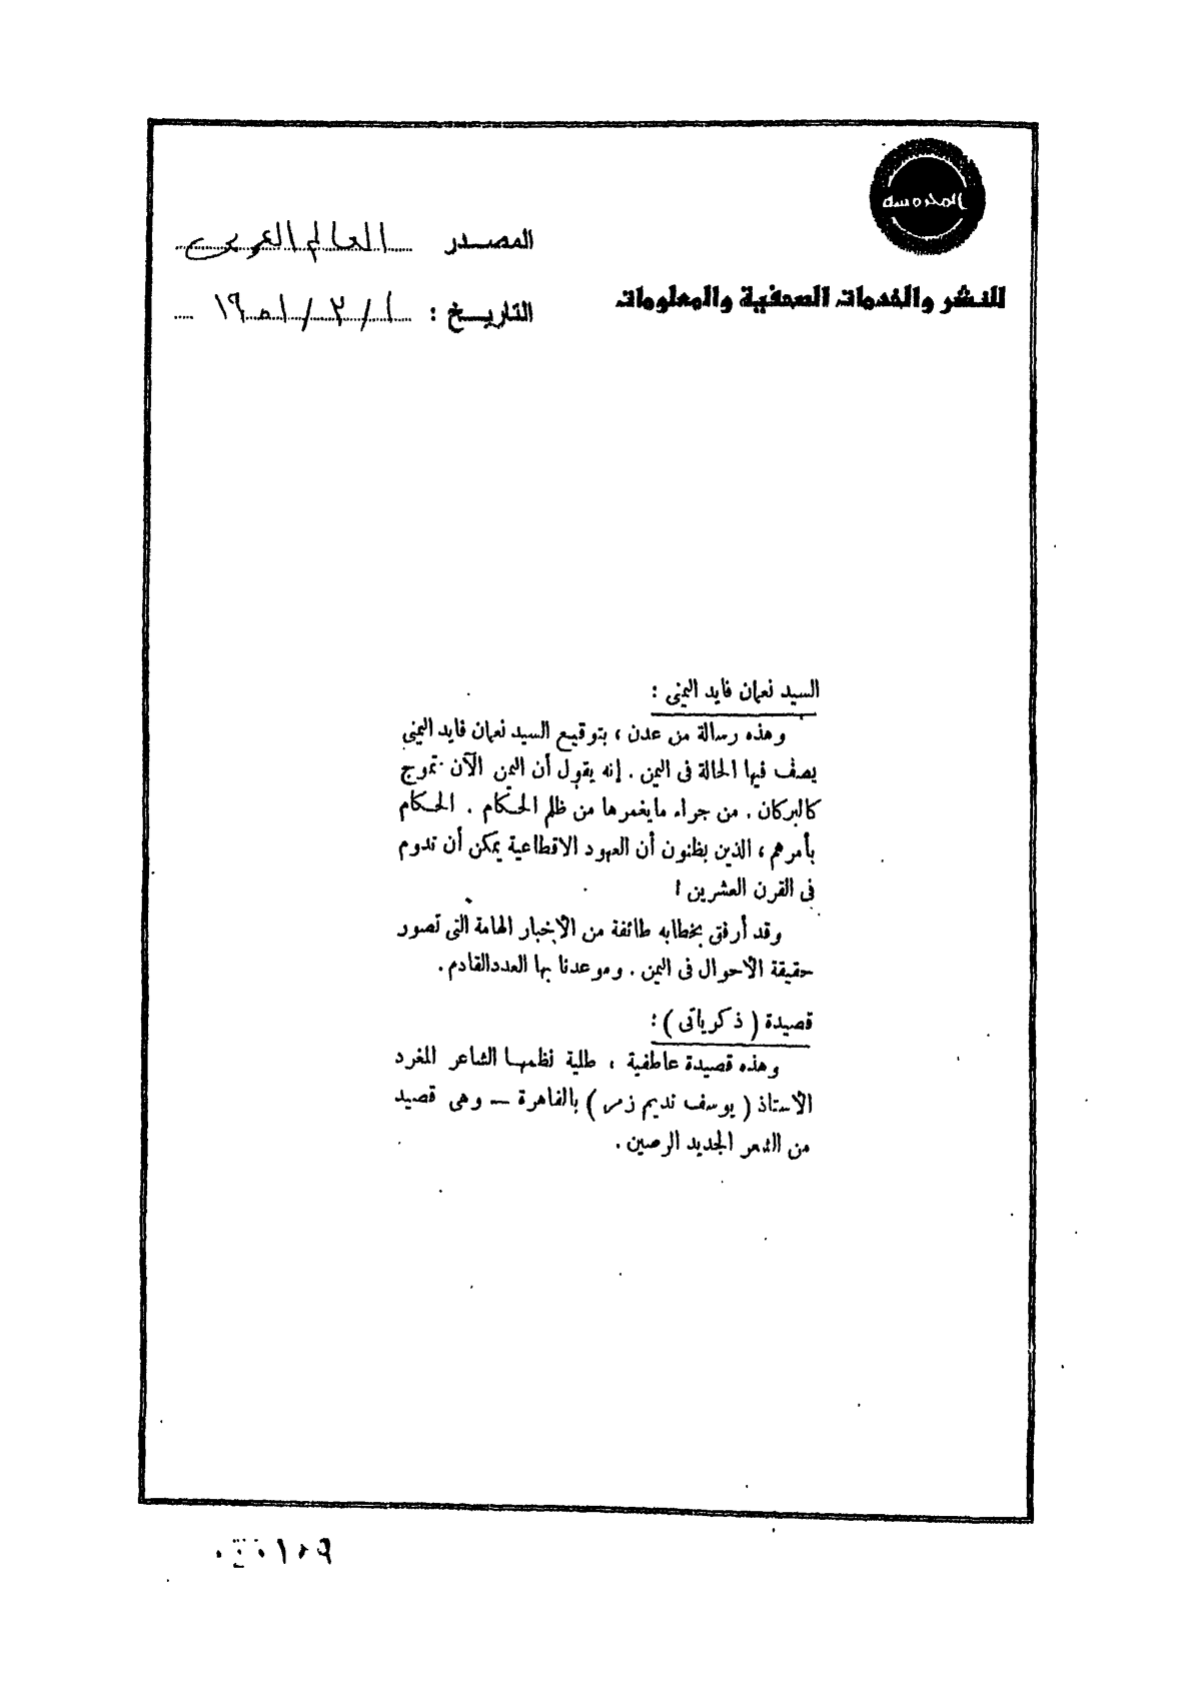 المحروسة
للنشر والخدمات الصحفية والمعلومات
المصدر العالم العربى
التاريخ : ١ / ٣ / ١٩٥١
السيد نعمان فايد اليمنى :
وهذه رسالة من عدن ، بتوقيع السيد نعمان فايد اليمنى
يصف فيها الحالة فى اليمن . إنه يقول أن اليمن الآن تموج
كالبركان . من جراء ما يغمرها من ظلم الحكام . الحكام
بأمرهم ، الذين يظنون أن العهود الاقطاعية يمكن أن تدوم
فى القرن العشرين !
وقد أرفق بخطابه طائفة من الأخبار الهامة التى تصور
حقيقة الأحوال فى اليمن . وموعدنا بها العدد القادم .
قصيدة ( ذكرياتى ) :
وهذه قصيدة عاطفية ، طلية نظمها الشاعر المغرد
الأستاذ ( يوسف نديم زمر ) بالقاهرة — وهى قصيد
من الشعر الجديد الرصين .